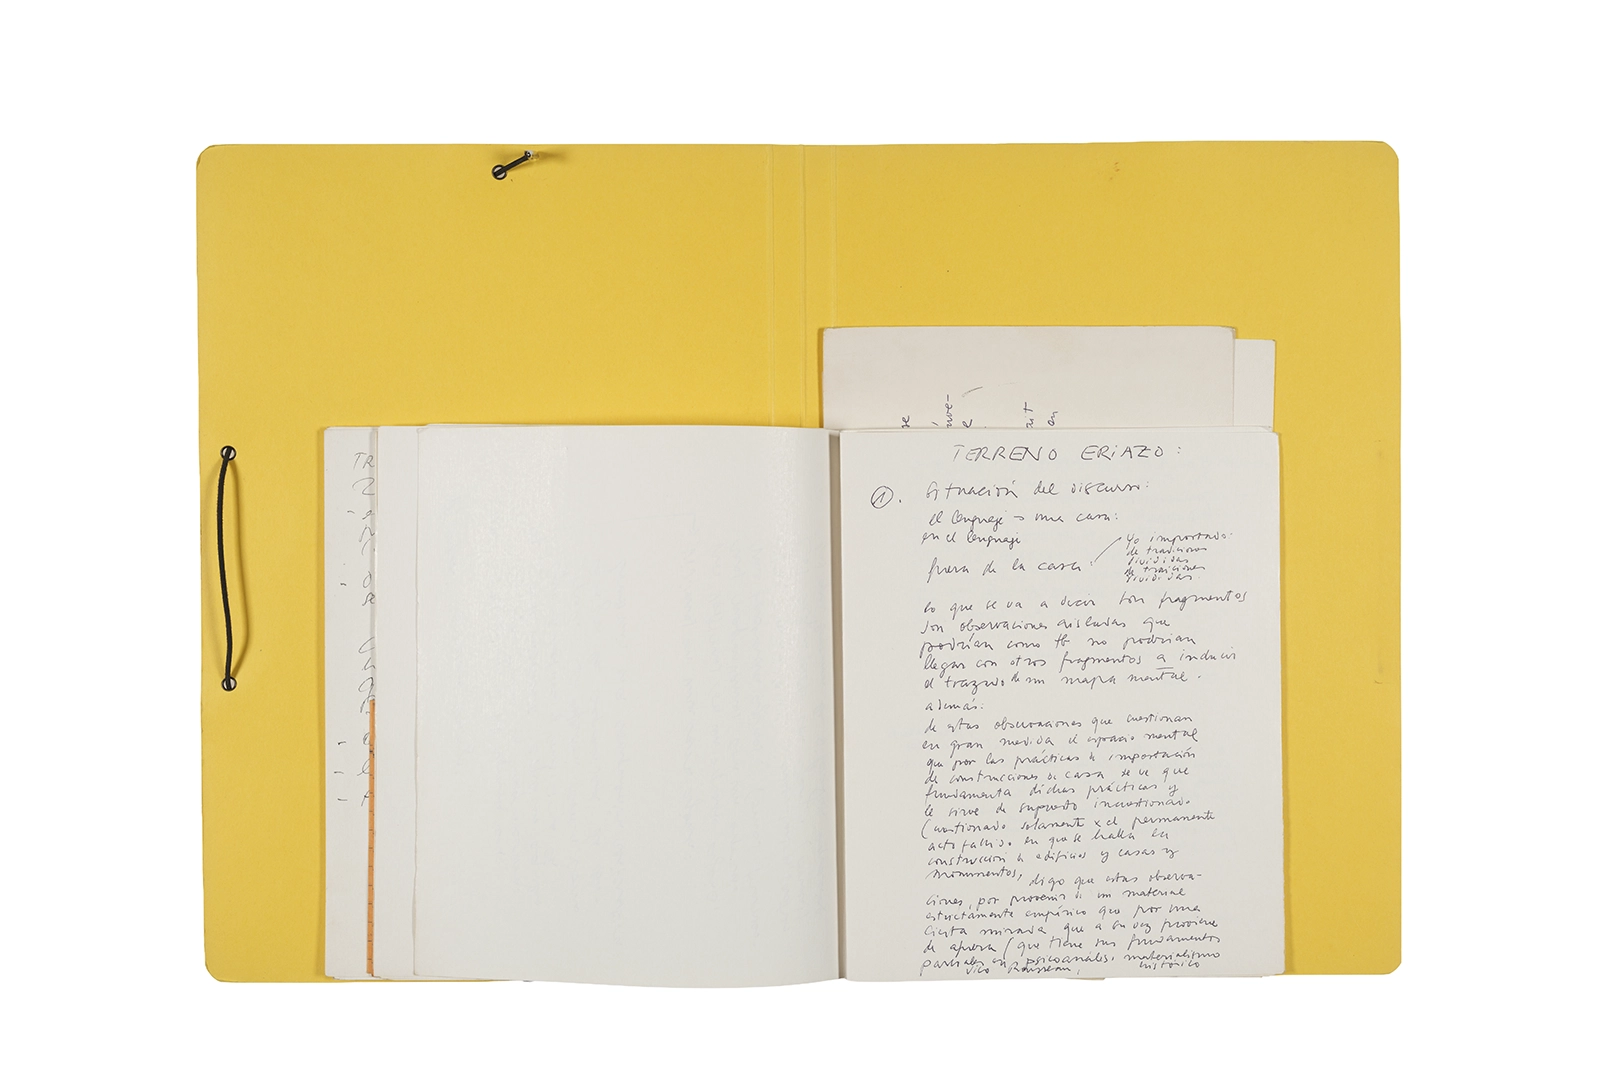 se
nve-
e
art
en
TR
2
TERRENO ERIAZO:
1. Situación del discurso:
el lenguaje → una casa:
en el lenguaje
fuera de la casa:
Yo importado:
de tradiciones
divididas
de traiciones
divididas.
lo que se va a decir son fragmentos
son observaciones aisladas que
podrían como tb no podrían
llegar con otros fragmentos a inducir
el trazado de un mapa mental.
además:
de estas observaciones que cuestionan
en gran medida el espacio mental
que por las prácticas de importación
de construcciones de casa se ve que
fundamenta dichas prácticas y
le sirve de supuesto incuestionado
(cuestionado solamente x el permanente
acto fallido en que se halla la
construcción de edificios y casas y
monumentos, digo que estas observa-
ciones, por provenir de un material
estrictamente empírico que por una
cierta mirada que a su vez proviene
de afuera (que tiene sus fundamentos
parciales en psicoanálisis, materialismo
histórico
Vico Rousseau,